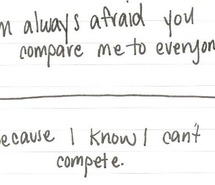 always afraid you
compare me to
because I know I can't
compete.